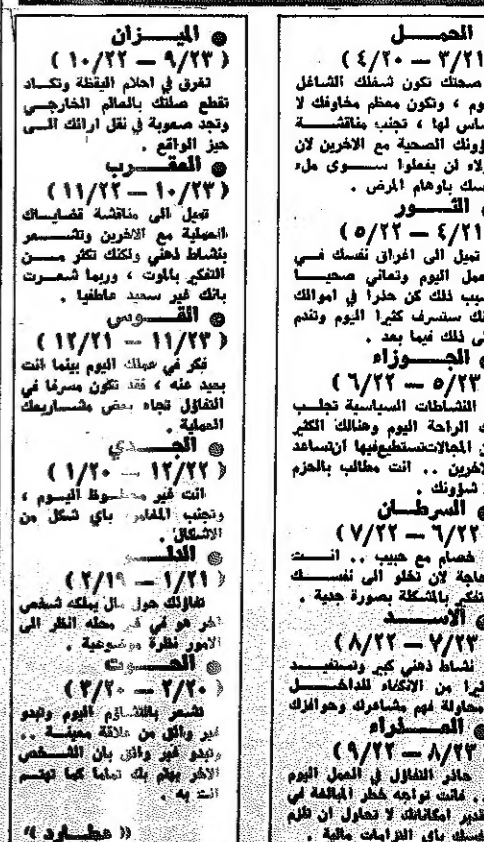 الحمــــــل
٣/٢١ — ٤/٢٠ )
صحتك تكون شغلك الشاغل
، وتكون معظم مخاوفك لا
لها ، تجنب مناقشــــة
الصحية مع الاخرين لان
لن يفعلوا ســــوى ملء
باوهام المرض .
الثــــور
٤/٢١ — ٥/٢٢ )
تميل الى اغراق نفسك فــي
اليوم وتعاني صحيــــا
ذلك كن حذرا في اموالك
ستسرف كثيرا اليوم وتندم
ذلك فيما بعد .
الجــــوزاء
٥/٢٣ — ٦/٢٢ )
النشاطات السياسية تجلــب
الراحة اليوم وهنالك الكثير
المجالات تستطيع فيها ان تساعد
.. انت مطالب بالحزم
شؤونك .
السرطــان
٦/٢٢ — ٧/٢٢ )
خصام مع حبيب .. انــــت
لان تخلو الى نفســــك
بالمشكلة بصورة جدية .
الأســــد
٧/٢٣ — ٨/٢٢ )
نشاط ذهني كبير وتستفيــــد
من الانكفاء للداخــــل
محاولة فهم مشاعرك وحوافزك
العــــذراء
٨/٢٣ — ٩/٢٢ )
حاذر التفاؤل في العمل اليوم
.. فانت تواجه خطر المبالغة في
امكاناتك لا تحاول ان تلزم
باي التزامات مالية .
الميــــزان
( ٩/٢٣ — ١٠/٢٢ )
تغرق في احلام اليقظة وتكــاد
تقطع صلتك بالعالم الخارجــي
وتجد صعوبة في نقل ارائك الــى
حيز الواقع .
العقــــرب
( ١٠/٢٣ — ١١/٢٢ )
تميل الى مناقشة قضايــاك
العملية مع الاخرين وتشــــعر
بنشاط ذهني ولكنك تكثر مــــن
التفكير بالموت ، وربما شعــرت
بانك غير سعيد عاطفيا .
القــــوس
( ١١/٢٣ — ١٢/٢١ )
فكر في عملك اليوم بينما انت
بعيد عنه ، فقد تكون مسرفا في
التفاؤل تجاه بعض مشــاريعك
العملية .
الجــــدي
( ١٢/٢٢ — ١/٢٠ )
انت غير محظــوظ اليــوم ،
وتجنب باي شكل من
الاشكال .
الدلــــو
( ١/٢١ — ٢/١٩ )
تفاؤلك حول مال يملكه شخص
اخر هو في غير محله انظر الى
الامور نظرة موضوعية .
الحــــوت
( ٢/٢٠ — ٣/٢٠ )
تشعر بالتشاؤم اليوم وتبدو
غير واثق من علاقة معينــة ..
وتبدو غير واثق بان الشــخص
الاخر يهتم بك تماما كما تهتــم
انت به .
(( عطــارد ))